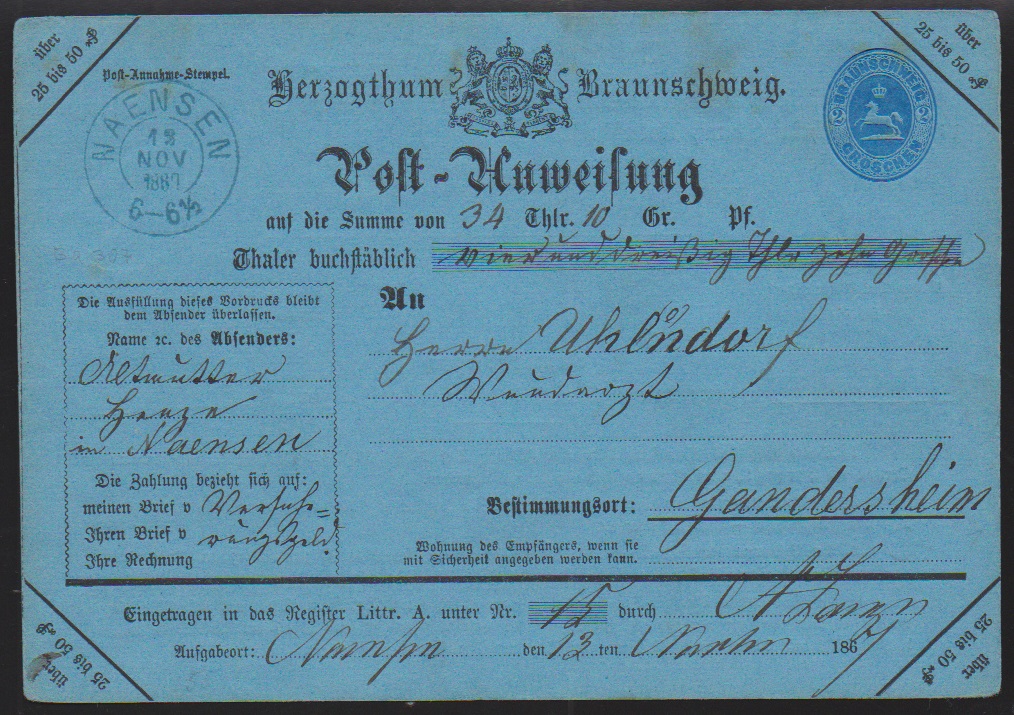 über
25 bis 50 ₰
Post-Annahme-Stempel.
NAENSEN
13
NOV
1867
6–6½
Herzogthum Braunschweig.
BRAUNSCHWEIG
2 2
GROSCHEN
über
25 bis 50 ₰
Post-Anweisung
auf die Summe von 34 Thlr. 10 Gr. Pf.
Thaler buchstäblich vierunddreißig Thlr zehn
Die Ausfüllung dieses Vordrucks bleibt
dem Absender überlassen.
Name ꝛc. des Absenders:
Altmutter
Henze
in Naensen
Die Zahlung bezieht sich auf:
meinen Brief v
Ihren Brief v
Ihre Rechnung
An
Herrn Uhlndorf
Wundarzt
Bestimmungsort: Gandersheim
Wohnung des Empfängers, wenn sie
mit Sicherheit angegeben werden kann.
Eingetragen in das Register Littr. A. unter Nr. 15 durch
Aufgabeort: Naensen den 13 ten 1867
über
25 bis 50 ₰
über
25 bis 50 ₰